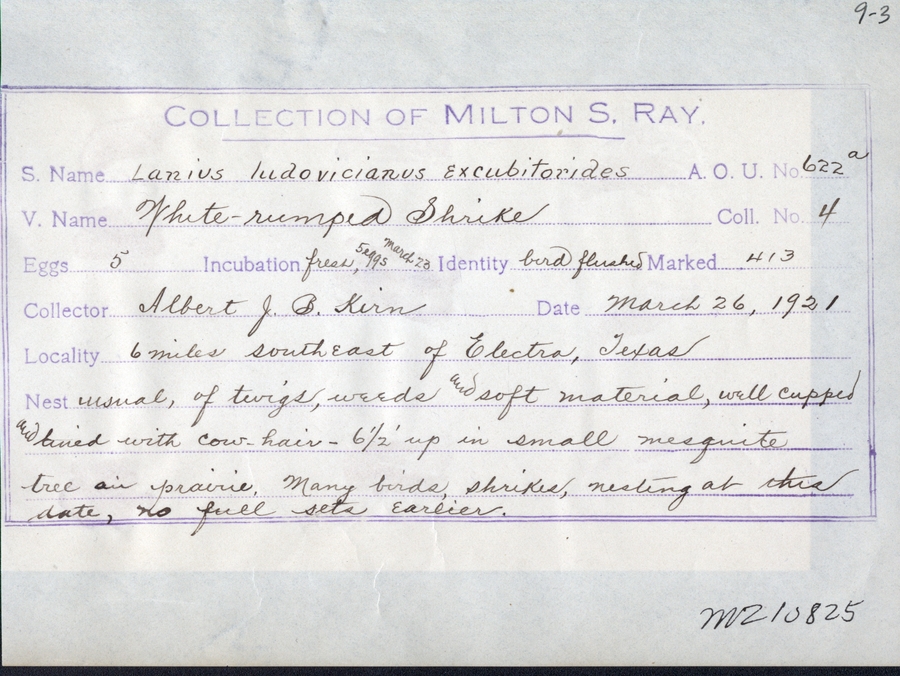 9-3
COLLECTION OF MILTON S. RAY.
S. Name Lanius ludovicianus excubitorides A. O. U. No. 622a
V. Name White-rumped Shrike Coll. No. 4
Eggs 5 Incubation fresh, 5 eggs March 23 Identity bird flushed Marked 413
Collector Albert J. B. Kirn Date March 26, 1921
Locality 6 miles southeast of Electra, Texas
Nest usual, of twigs, weeds and soft material, well cupped
and lined with cow-hair - 6 1/2' up in small mesquite
tree on prairie. Many birds, shrikes, nesting at this
date, no full sets earlier.
MZ10825